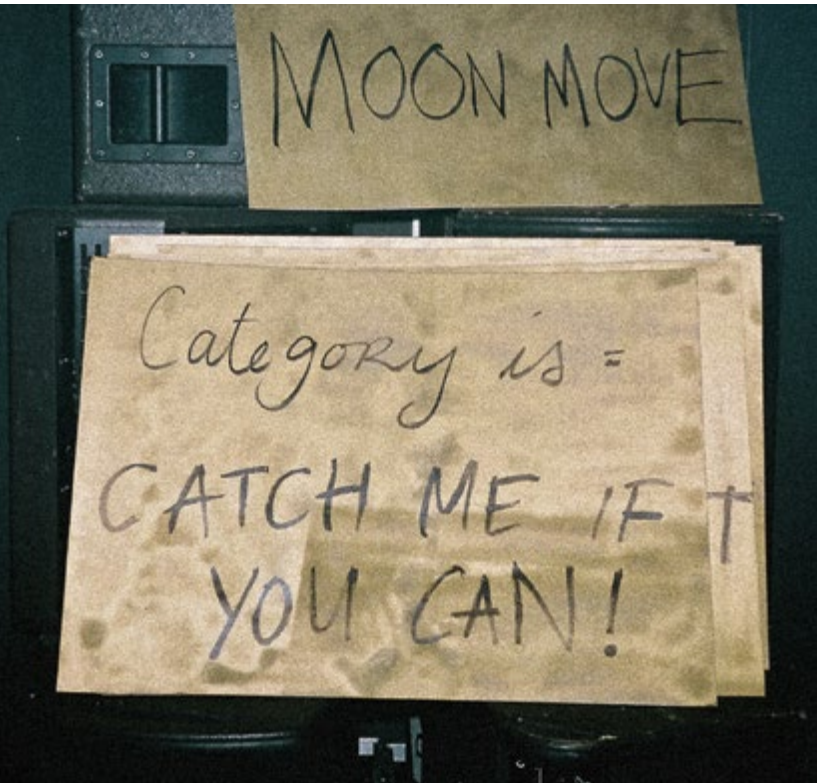 MOON MOVE
Category is =
CATCH ME IF T
YOU CAN!